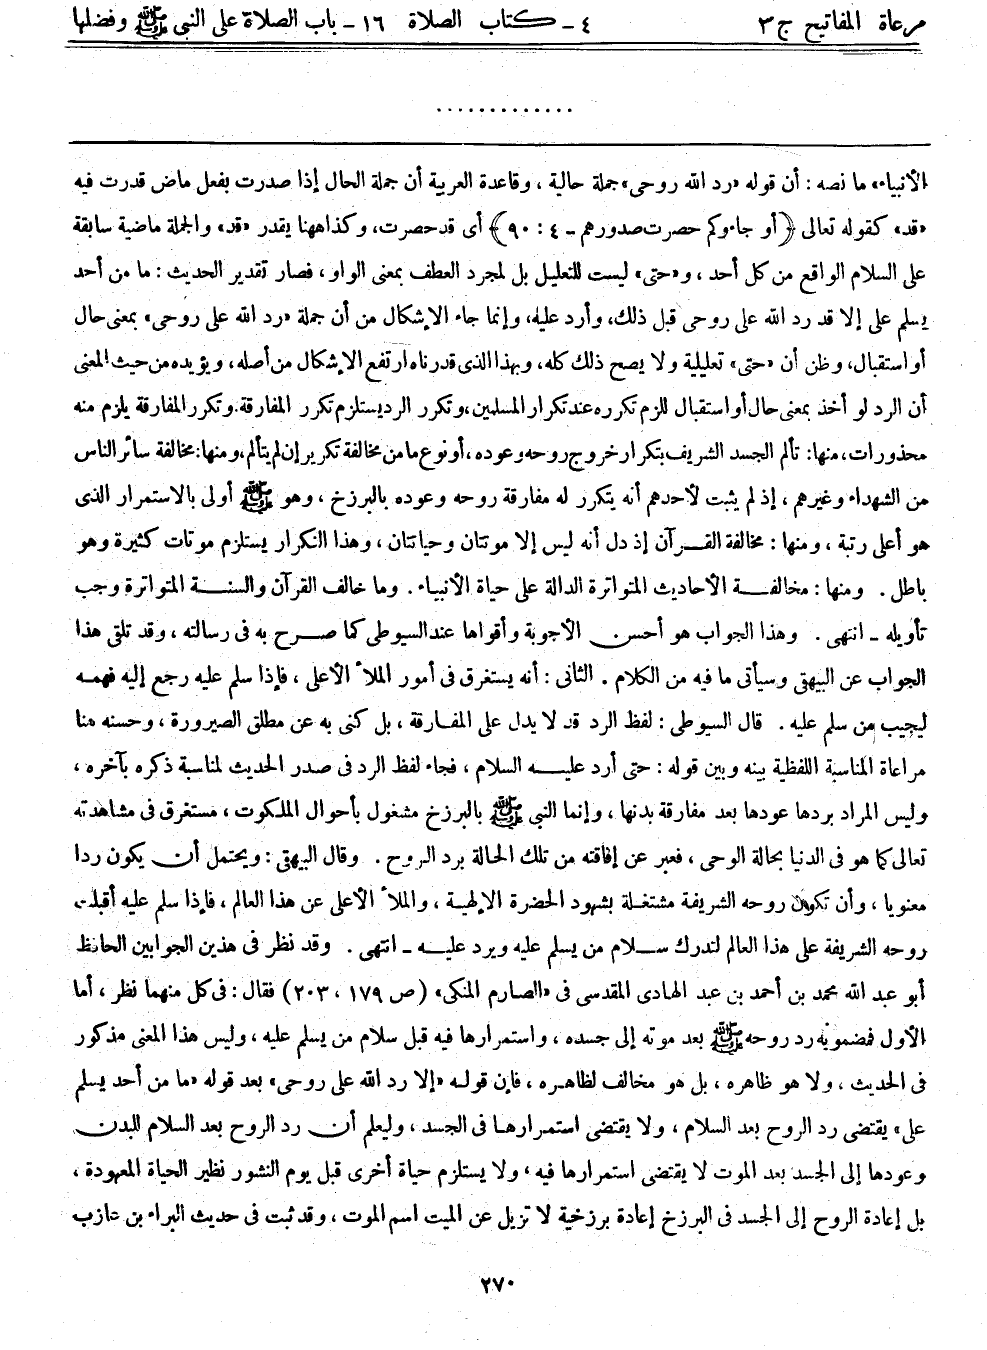 مرعاة المفاتيح ج ٣ ٤ - كتاب الصلاة ١٦ - باب الصلاة على النبي ﷺ وفضلها
.............
الأنبياء» ما نصه : أن قوله «رد الله روحى» جملة حالية ، وقاعدة العربية أن جملة الحال إذا صدرت بفعل ماض قدرت فيه
«قد» كقوله تعالى ﴿أو جاءوكم حصرت صدورهم - ٤ : ٩٠﴾ أى قد حصرت، وكذا ههنا يقدر «قد» والجملة ماضية سابقة
على السلام الواقع من كل أحد ، و«حتى» ليست للتعليل بل لمجرد العطف بمعنى الواو ، فصار تقدير الحديث : ما من أحد
يسلم على إلا قد رد الله على روحى قبل ذلك، وأرد عليه، وإنما جاء الإشكال من أن جملة «رد الله على روحى» بمعنى حال
أو استقبال، وظن أن «حتى» تعليلية ولا يصح ذلك كله، وبهذا الذى قدرناه ارتفع الإشكال من أصله، ويؤيده من حيث المعنى
أن الرد لو أخذ بمعنى حال أو استقبال للزم تكرره عند تكرار المسلمين، وتكرر الرد يستلزم تكرر المفارقة. وتكرر المفارقة يلزم منه
محذورات، منها: تألم الجسد الشريف بتكرار خروج روحه وعوده، أو نوع ما من مخالفة تكرير إن لم يتألم، ومنها: مخالفة سائر الناس
من الشهداء وغيرهم ، إذ لم يثبت لأحدهم أنه يتكرر له مفارقة روحه وعوده بالبرزخ ، وهو ﷺ أولى بالاستمرار الذى
هو أعلى رتبة ، ومنها : مخالفة القرآن إذ دل أنه ليس إلا موتتان وحياتان ، وهذا التكرار يستلزم موتات كثيرة وهو
باطل . ومنها : مخالفة الأحاديث المتواترة الدالة على حياة الأنبياء . وما خالف القرآن والسنة المتواترة وجب
تأويله - انتهى . وهذا الجواب هو أحسن الأجوبة وأقواها عند السيوطى كما صرح به فى رسالته ، وقد تلقى هذا
الجواب عن البيهقى وسيأتى ما فيه من الكلام . الثانى : أنه يستغرق فى أمور الملأ الأعلى ، فإذا سلم عليه رجع إليه فهمه
ليجيب من سلم عليه . قال السيوطى : لفظ الرد قد لا يدل على المفارقة ، بل كنى به عن مطلق الصيرورة ، وحسنه هنا
مراعاة المناسبة اللفظية بينه وبين قوله : حتى أرد عليه السلام ، فجاء لفظ الرد فى صدر الحديث لمناسبة ذكره بآخره ،
وليس المراد بردها عودها بعد مفارقة بدنها ، وإنما النبى ﷺ بالبرزخ مشغول بأحوال الملكوت ، مستغرق فى مشاهدته
تعالى كما هو فى الدنيا بحالة الوحى ، فعبر عن إفاقته من تلك الحالة برد الروح . وقال البيهقى : ويحتمل أن يكون ردا
معنويا ، وأن تكون روحه الشريفة مشتغلة بشهود الحضرة الإلهية ، والملأ الأعلى عن هذا العالم ، فإذا سلم عليه أقبلت
روحه الشريفة على هذا العالم لتدرك سلام من يسلم عليه ويرد عليه - انتهى . وقد نظر فى هذين الجوابين الحافظ
أبو عبد الله محمد بن أحمد بن عبد الهادى المقدسى فى «الصارم المنكى» (ص ١٧٩ ، ٢٠٣) فقال : فى كل منهما نظر ، أما
الأول فمضمونه رد روحه ﷺ بعد موته إلى جسده ، واستمرارها فيه قبل سلام من يسلم عليه ، وليس هذا المعنى مذكور
فى الحديث ، ولا هو ظاهره ، بل هو مخالف لظاهره ، فإن قوله «إلا رد الله على روحى» بعد قوله «ما من أحد يسلم
على» يقتضى رد الروح بعد السلام ، ولا يقتضى استمرارها فى الجسد ، وليعلم أن رد الروح بعد السلام للبدن
وعودها إلى الجسد بعد الموت لا يقتضى استمرارها فيه ، ولا يستلزم حياة أخرى قبل يوم النشور نظير الحياة المعهودة ،
بل إعادة الروح إلى الجسد فى البرزخ إعادة برزخية لا تزيل عن الميت اسم الموت ، وقد ثبت فى حديث البراء بن عازب
٢٧٠